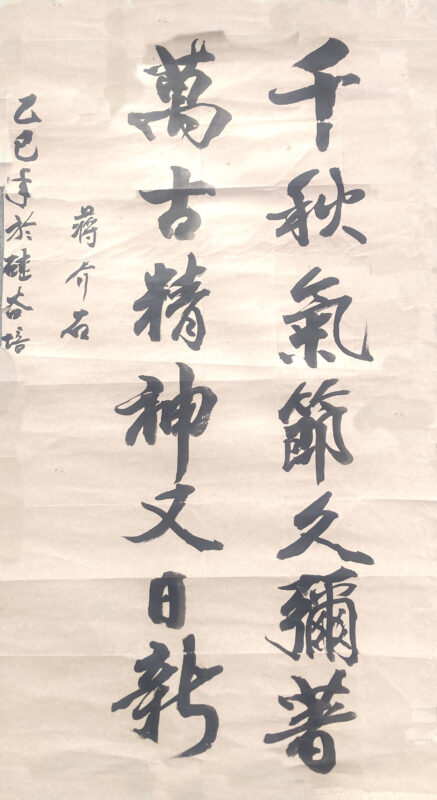 千秋氣節久彌著
萬古精神又日新
蔣介石
乙巳年於硅谷培